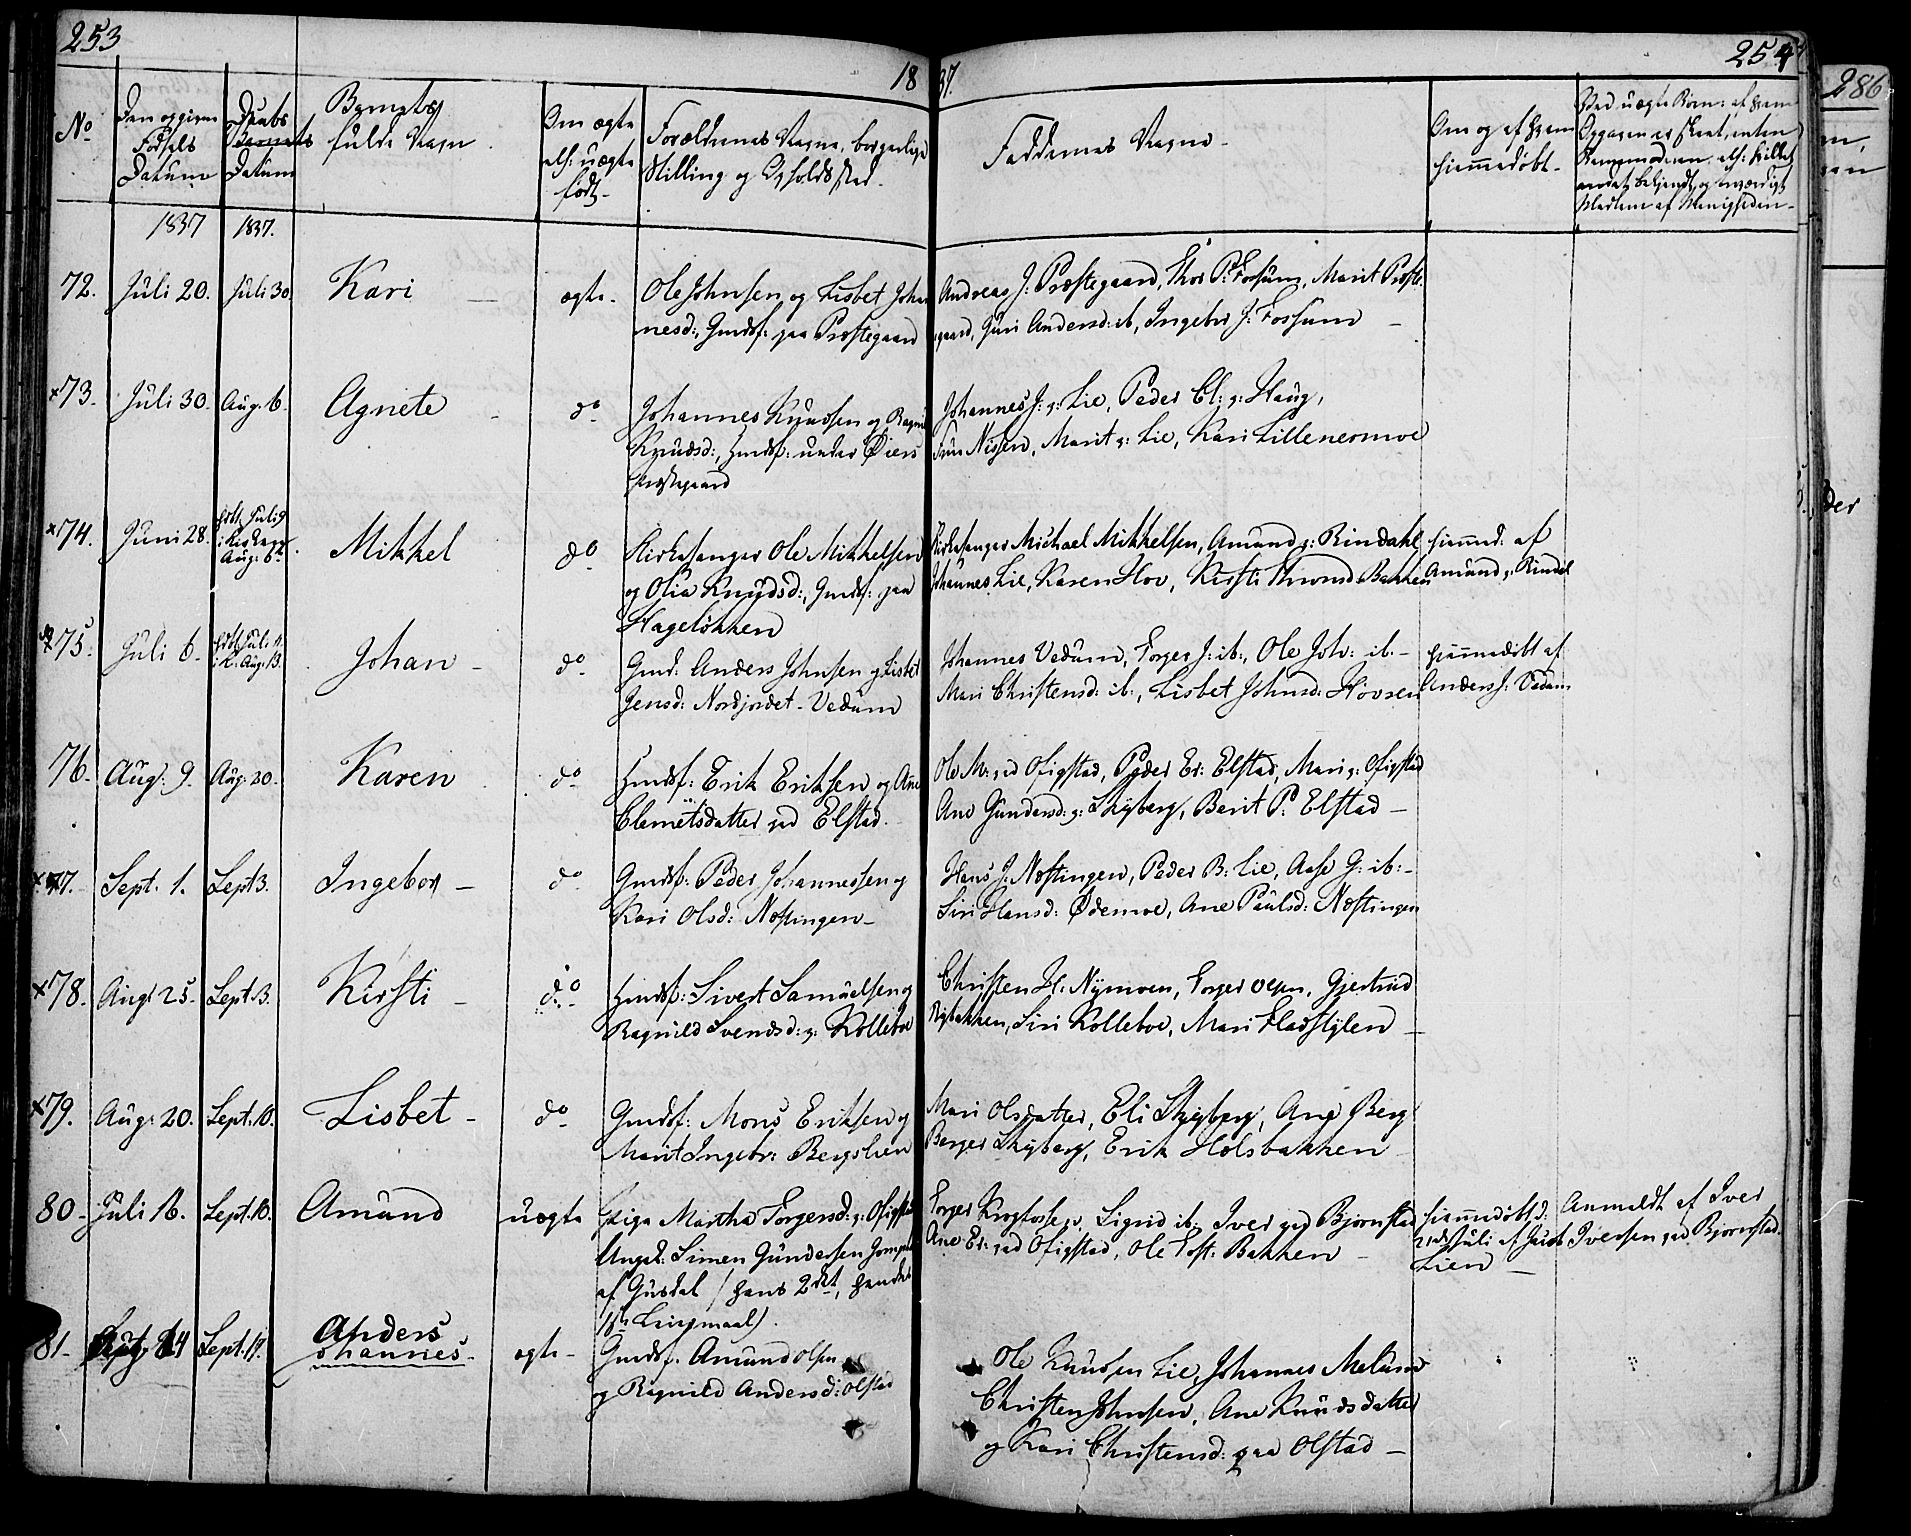 253
254
286
18
37.
No
Den opgivne
Fødsels
Datum
Daabs
Datum
Barnets
fulde Navn
Om ægte
els: uægte
født
Forældrenes Navne, borgerlige
Stilling og Opholdssted
Faddernes Navne
Om og af hvem
hjemmedøbt
Ved uægte Børn: af hvem
1837
1837.
72.
Juli 20.
Juli 30.
Kari
ægte
Ole Johnsen og Lisbet Johan
nesd:, Gmdsf: paa Præstegaard
Andreas J: Præstegaard, Thor P. Fossum, Marit Præste
gaard, Guri Andersd: ib, Ingebor J: Fossum
x73.
Juli 30.
Aug. 6.
Agnete
do
Johannes Knudsen og Ragn
Knudsd:, Hmdsf: under Øiers
Præstegaard
Johannes J: g: Lie, Peder Cl: g: Haug,
Fru Nissen, Marit g: Lie, Kari Lillenermoe
x74.
Juni 28.
hdbt Juli 9
i Kirken
Aug: 6te
Mikkel
do
Kirkesanger Ole Mikkelsen
og Olia Knudsd:, Gmdsf: paa
Hageløkken
Kirkesanger Michael Mikkelsen, Amund g: Rindahl
Johannes Lie, Karen Hov, Kirsti Thronsd: Bakken
hjemmd: af
Amund g: Rindal
x75.
Juli 6.
hdbt Juli 11
i K: Aug: 13.
Johan
do
Gmd: Anders Johnsen og Lisbet
Jensd: Nordjordet Vedum
Johannes Vedum, Torger J: ib:, Ole Joh: ib.
Mari Christensd: ib:, Lisbet Johnsd: Hovren
hjemmedøbt af
Anders J: Vedum
76.
Aug: 9.
Aug: 20.
Karen
do
Hmdsf: Erik Eriksen og Ane
Clemetsdatter gd Elstad.
Ole M: gd Ofigstad, Peder Er: Elstad, Mari g: Ofigstad
Ane Gundersd: g: Skyberg, Berit P: Elstad
x77.
Sept. 1.
Sept 3.
Ingebor
do
Gmdsf: Peder Johannessen og
Kari Olsd: Nostingen
Hans J: Nostingen, Peder B: Lie, Aase G: ib:
Siri Hansd: Ødemoe, Ane Paulsd: Nostingen
x78.
Augt 25.
Sept 3.
Kirsti
do
Hmdsf: Sivert Samuelsen og
Ragnild Svendsd: g: Kolleboe
Christen H: Nymoen, Torger Gjertrud
Siri Kolleboe, Mari Fladstylen
x79.
Aug: 20.
Sept: 10.
Lisbet
do
Gmdsf: Mons Eriksen og
Marit Ingebr: Bergslien
Mari Olsdatter, Eli Skyberg, Ane Berg
Berger Skyberg, Erik Holsbakken
80
Juli 16.
Sept. 10.
Amund
uægte
Pige Martha Torgersd: g: Ofigstad
Ungk: Simen Gundersen
af Gusdal (hans 2det, hendes
1ste Leiermaal).
Torger Krogfosse, Sigrid ib: Iver gd Bjørnstad
Ane Er: gd Ofigstad, Ole Bakken
hjemmedøbt d:
21de Juli af Jacob
Lien
Anmeldt af Iver
Iversen gd Bjørnstad.
81
Sept. 17.
Anders
Johannes
ægte
Gmdsf. Amund Olsen
og Ragnild Andersd: Olstad
Ole Knudsen Lie, Johannes Melum
Christen Johnsen, Ane Knudsdatter
og Kari Christensd: paa Olstad